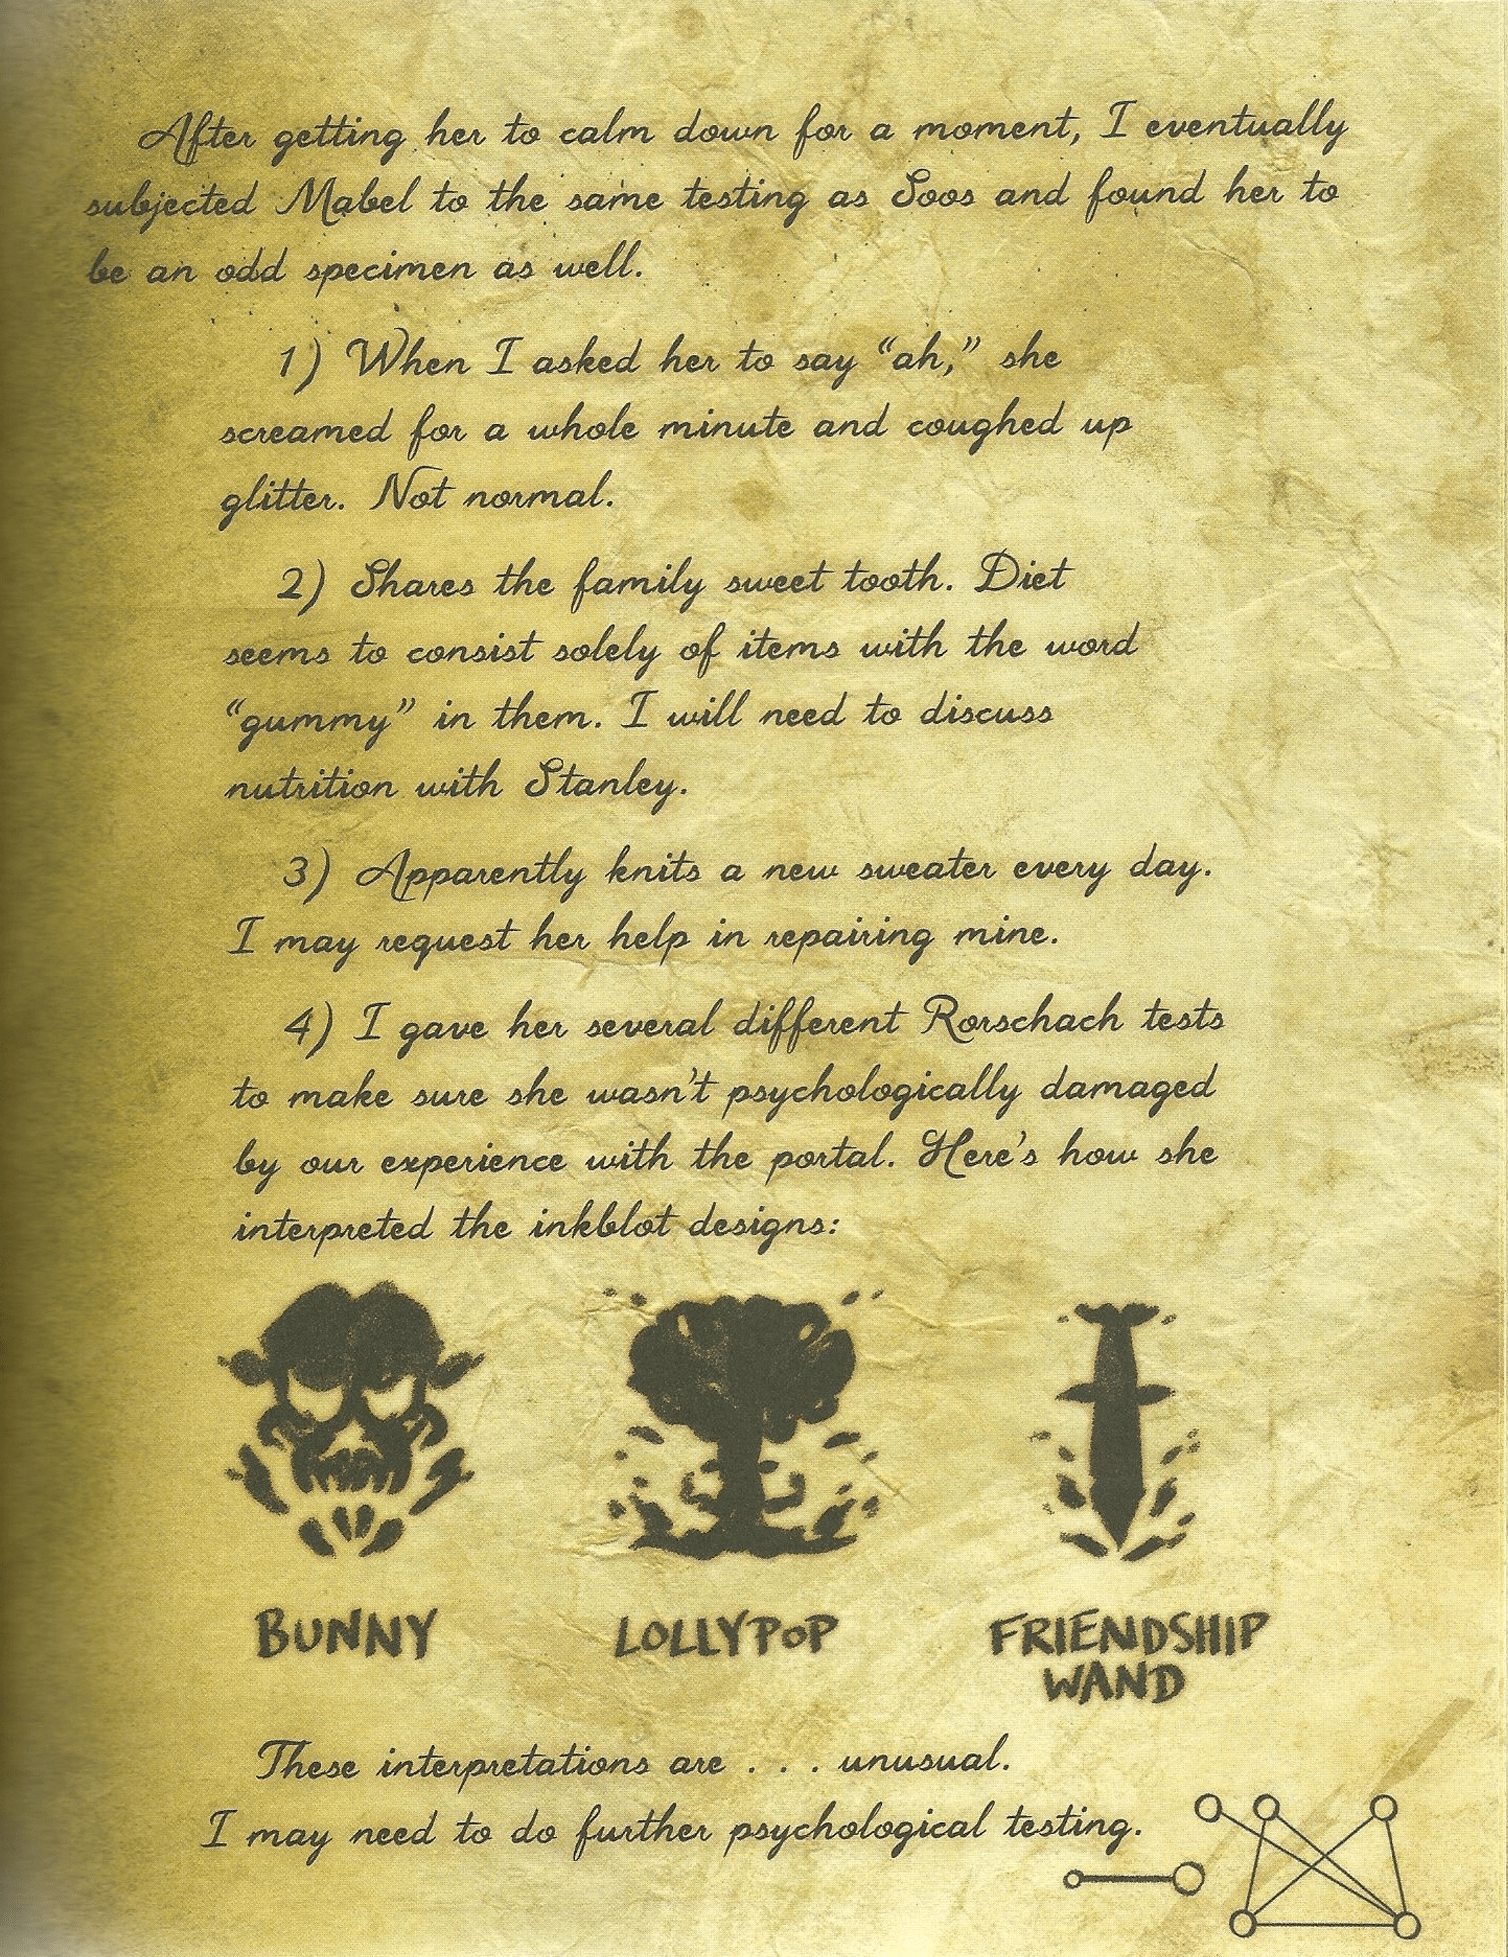 After getting her to calm down for a moment, I eventually
subjected Mabel to the same testing as Soos and found her to
be an odd specimen as well.
1) When I asked her to say “ah,” she
screamed for a whole minute and coughed up
glitter. Not normal.
2) Shares the family sweet tooth. Diet
seems to consist solely of items with the word
“gummy” in them. I will need to discuss
nutrition with Stanley.
3) Apparently knits a new sweater every day.
I may request her help in repairing mine.
4) I gave her several different Rorschach tests
to make sure she wasn’t psychologically damaged
by our experience with the portal. Here’s how she
interpreted the inkblot designs:
BUNNY
LOLLYPOP
FRIENDSHIP
WAND
These interpretations are . . . unusual.
I may need to do further psychological testing.